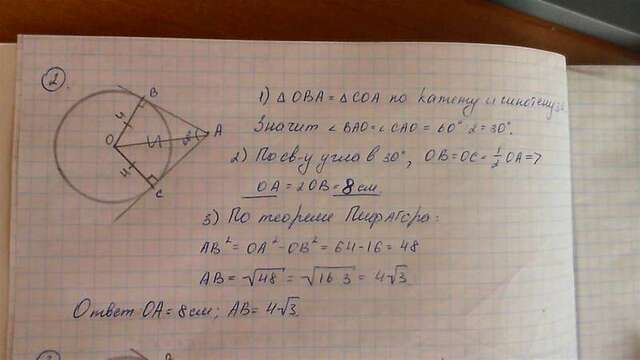 2
B
4
O
A
60°
4
C
1) △OBA = △COA по катету и гипотенузе
Значит ∠BAO = ∠CAO = 60°:2 = 30°.
2) По св-у угла в 30°, OB = OC = 1/2 OA =>
OA = 2OB = 8 см.
3) По теореме Пифагора:
AB² = OA² - OB² = 64 - 16 = 48
AB = √48 = √16·3 = 4√3
Ответ OA = 8 см; AB = 4√3.